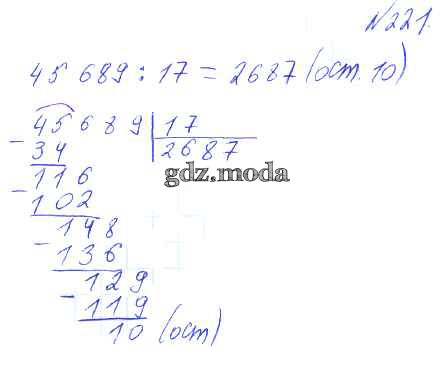 №221.
45 689 : 17 = 2687 (ост. 10)
45689 | 17
- 34 | 2687
gdz.moda
116
- 102
148
- 136
129
- 119
10 (ост)